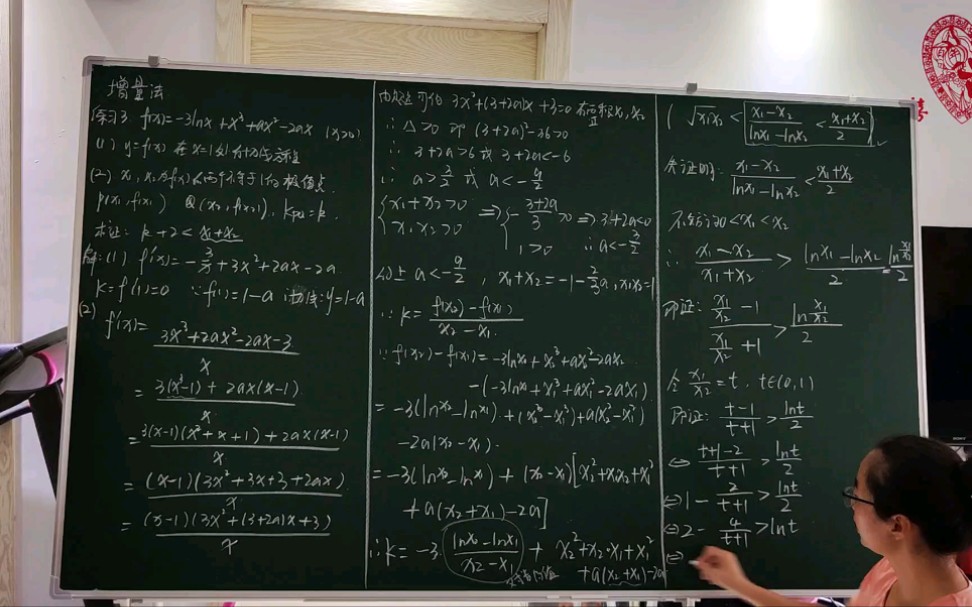 增量法
练习3. f(x)=-3lnx+x³+ax²-2ax (x>0)
(1) y=f(x) 在 x=1处的切线方程
(2) x₁, x₂为f(x)的两个不等于1的极值点
P(x₁,f(x₁)) Q(x₂,f(x₂)), K_PQ=k.
求证: k+2<x₁+x₂
解:(1) f'(x)=-3/x+3x²+2ax-2a
k=f'(1)=0 ∵f(1)=1-a 切线:y=1-a
(2) f'(x)=(3x³+2ax²-2ax-3)/x
=(3(x³-1)+2ax(x-1))/x
=(3(x-1)(x²+x+1)+2ax(x-1))/x
=((x-1)(3x²+3x+3+2ax))/x
=((x-1)(3x²+(3+2a)x+3))/x
3x²+(3+2a)x+3=0 有两正根x₁,x₂
∴△>0 即 (3+2a)²-36>0
∴ 3+2a>6或3+2a<-6
∴ a>3/2 或 a<-9/2
{x₁+x₂>0 x₁x₂>0 ⇒ {-(3+2a)/3>0 1>0 ⇒ 3+2a<0 ∴a<-3/2
综上 a<-9/2, x₁+x₂=-1-2/3a, x₁x₂=1
∵k=(f(x₂)-f(x₁))/(x₂-x₁)
∵f(x₂)-f(x₁)=-3lnx₂+x₂³+ax₂²-2ax₂
-(-3lnx₁+x₁³+ax₁²-2ax₁)
=-3(lnx₂-lnx₁)+(x₂³-x₁³)+a(x₂²-x₁²)
-2a(x₂-x₁).
=-3(lnx₂-lnx₁)+(x₂-x₁)[x₂²+x₁x₂+x₁²
+a(x₂+x₁)-2a]
∴k=-3·(lnx₂-lnx₁)/(x₂-x₁)+x₂²+x₂·x₁+x₁²
+a(x₂+x₁)-2a
(√x₁x₂<(x₁-x₂)/(lnx₁-lnx₂)<(x₁+x₂)/2)
先证明: (x₁-x₂)/(lnx₁-lnx₂)<(x₁+x₂)/2
不妨设0<x₁<x₂
∴ (x₁-x₂)/(x₁+x₂)>(lnx₁-lnx₂)/2=(ln x₁/x₂)/2
即证: (x₁/x₂-1)/(x₁/x₂+1)>(ln x₁/x₂)/2
令x₁/x₂=t, t∈(0,1)
即证: (t-1)/(t+1)>lnt/2
⇔(t+1-2)/(t+1)>lnt/2
⇔1-2/(t+1)>lnt/2
⇔2-4/(t+1)>lnt
⇔